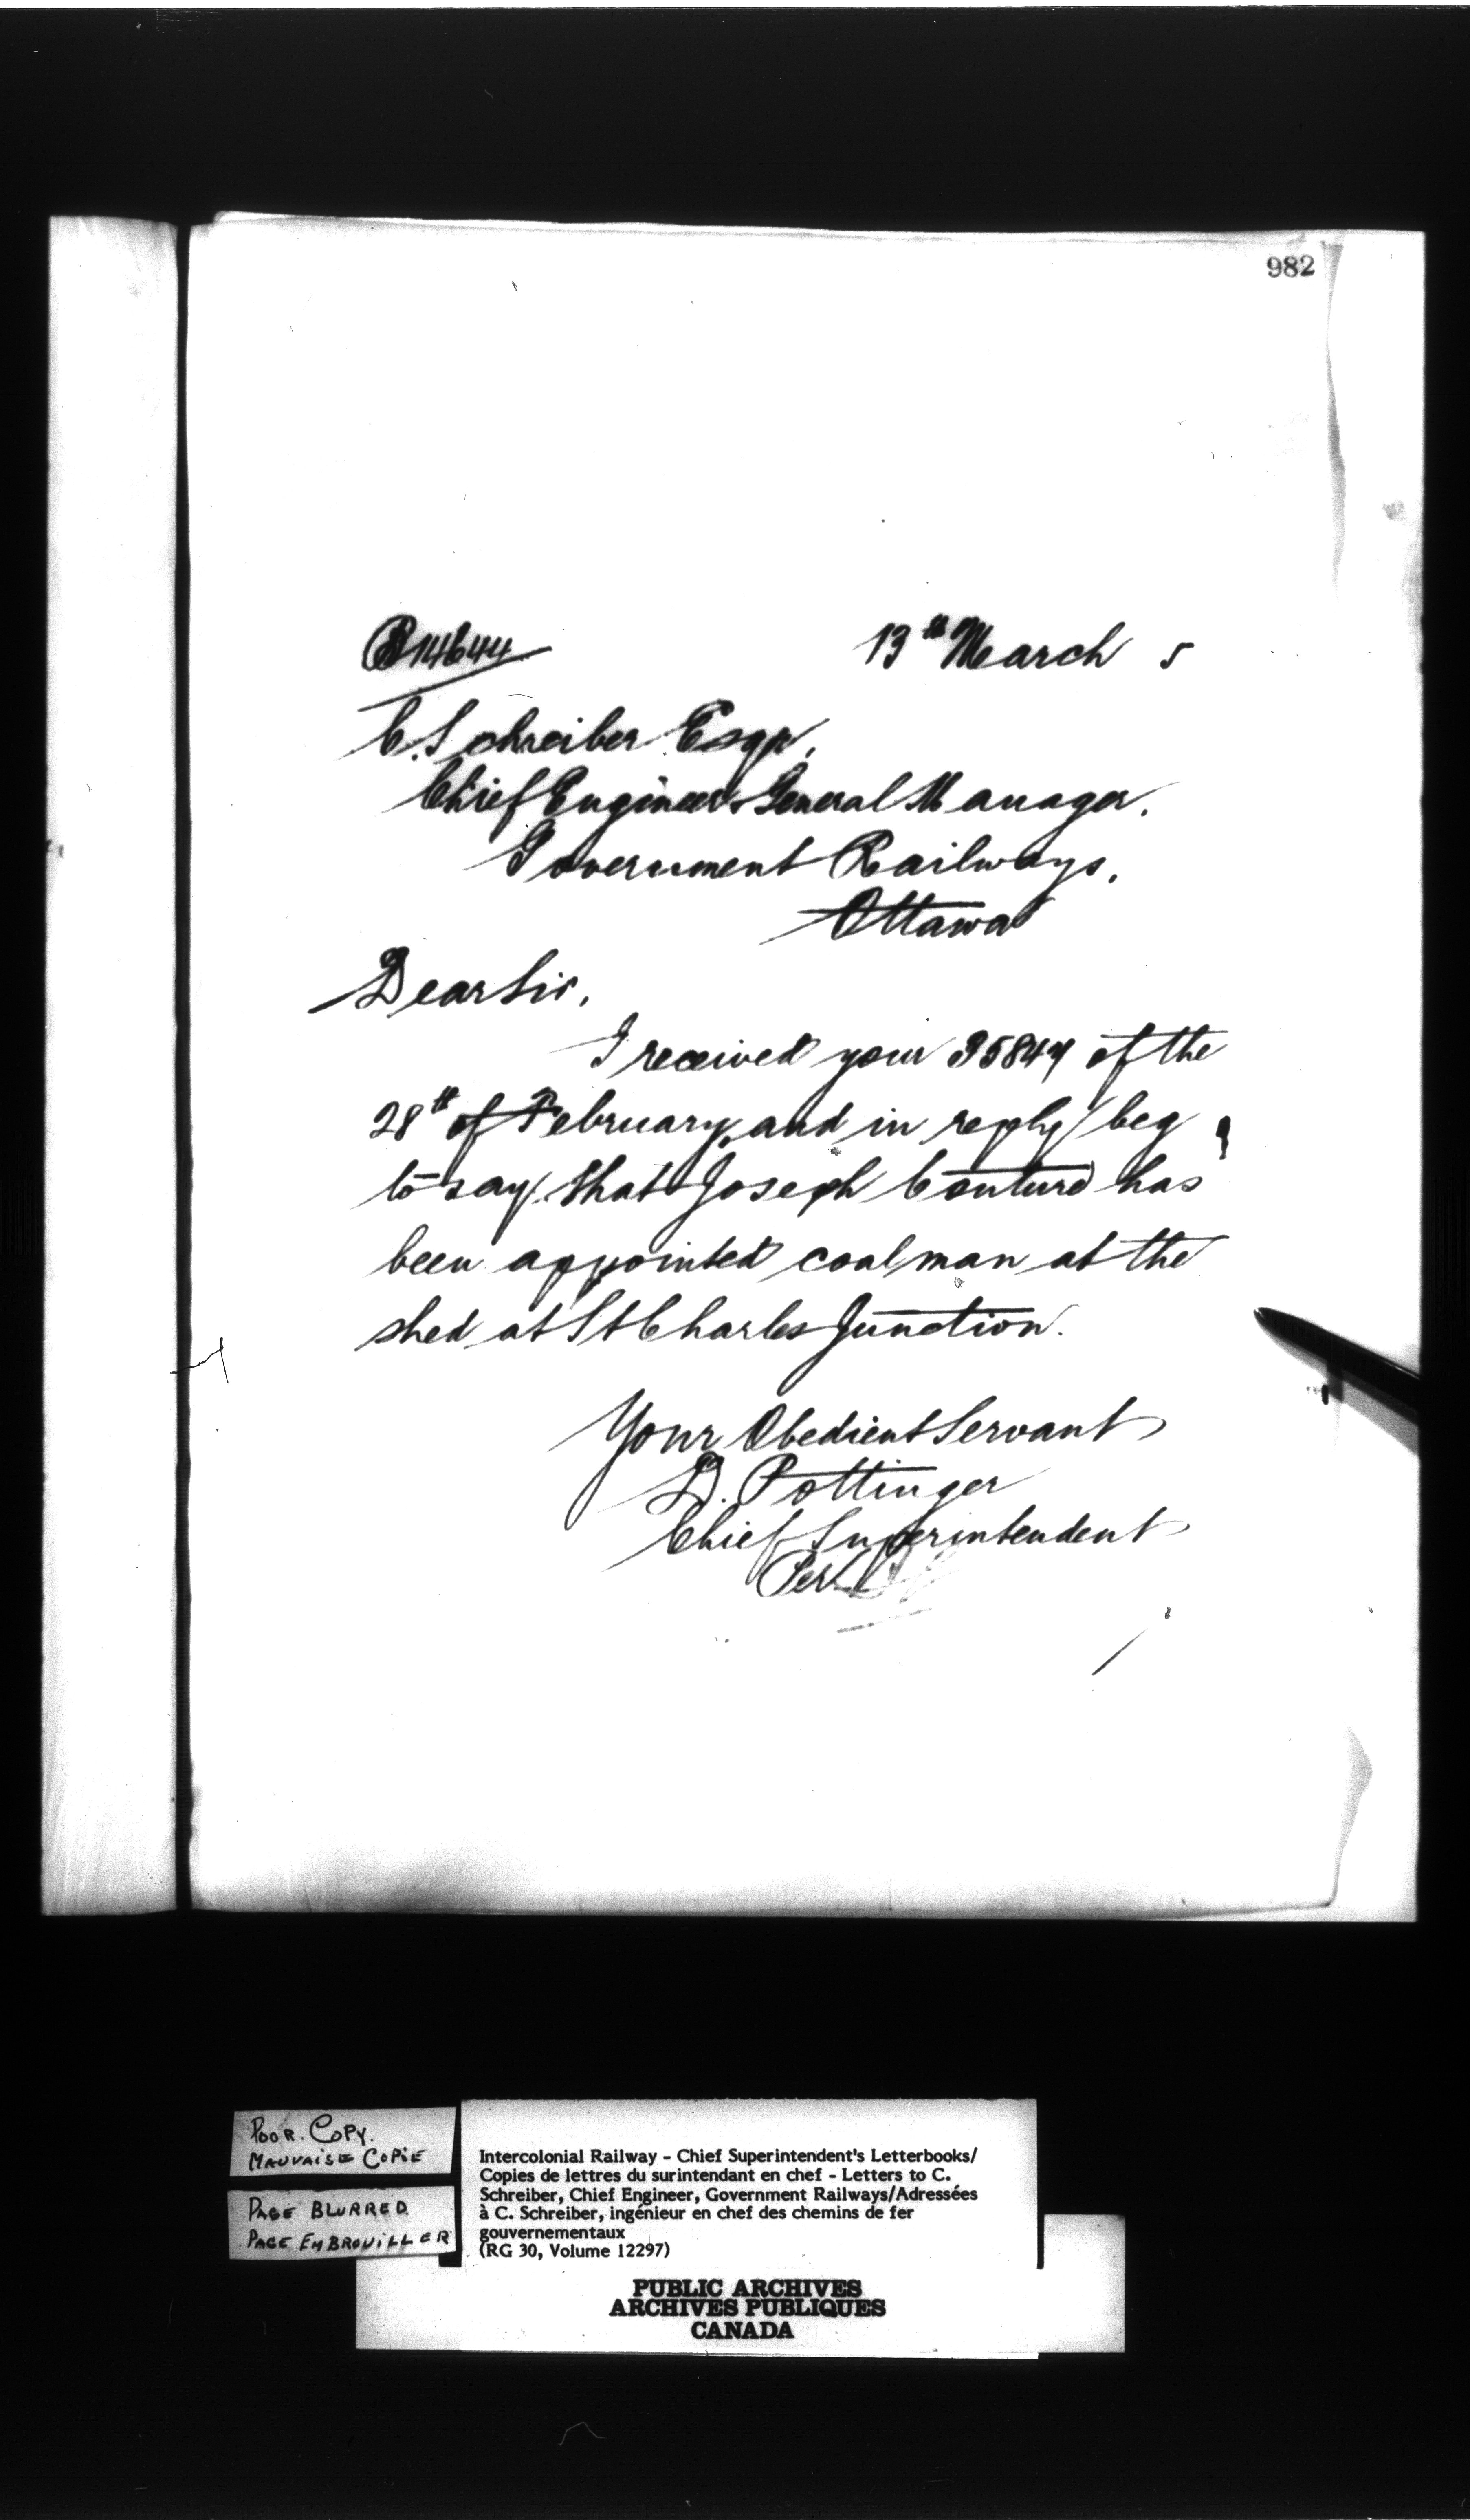 982
13th March 5
C. Schreiber Esqr,
Chief Engineer & General Manager.
Government Railways.
Ottawa
Dear Sir,
I received your 35847 of the
28th of February, and in reply beg
to say that Joseph Couture has
been appointed coalman at the
shed at St Charles Junction.
Your Obedient Servant
D. Pottinger
Chief Superintendent
Per
POOR. COPY.
MAUVAISE COPIE
PAGE BLURRED.
PAGE EMBROUILLER
Intercolonial Railway - Chief Superintendent's Letterbooks/
Copies de lettres du surintendant en chef - Letters to C.
Schreiber, Chief Engineer, Government Railways/Adressées
à C. Schreiber, ingénieur en chef des chemins de fer
gouvernementaux
(RG 30, Volume 12297)
PUBLIC ARCHIVES
ARCHIVES PUBLIQUES
CANADA